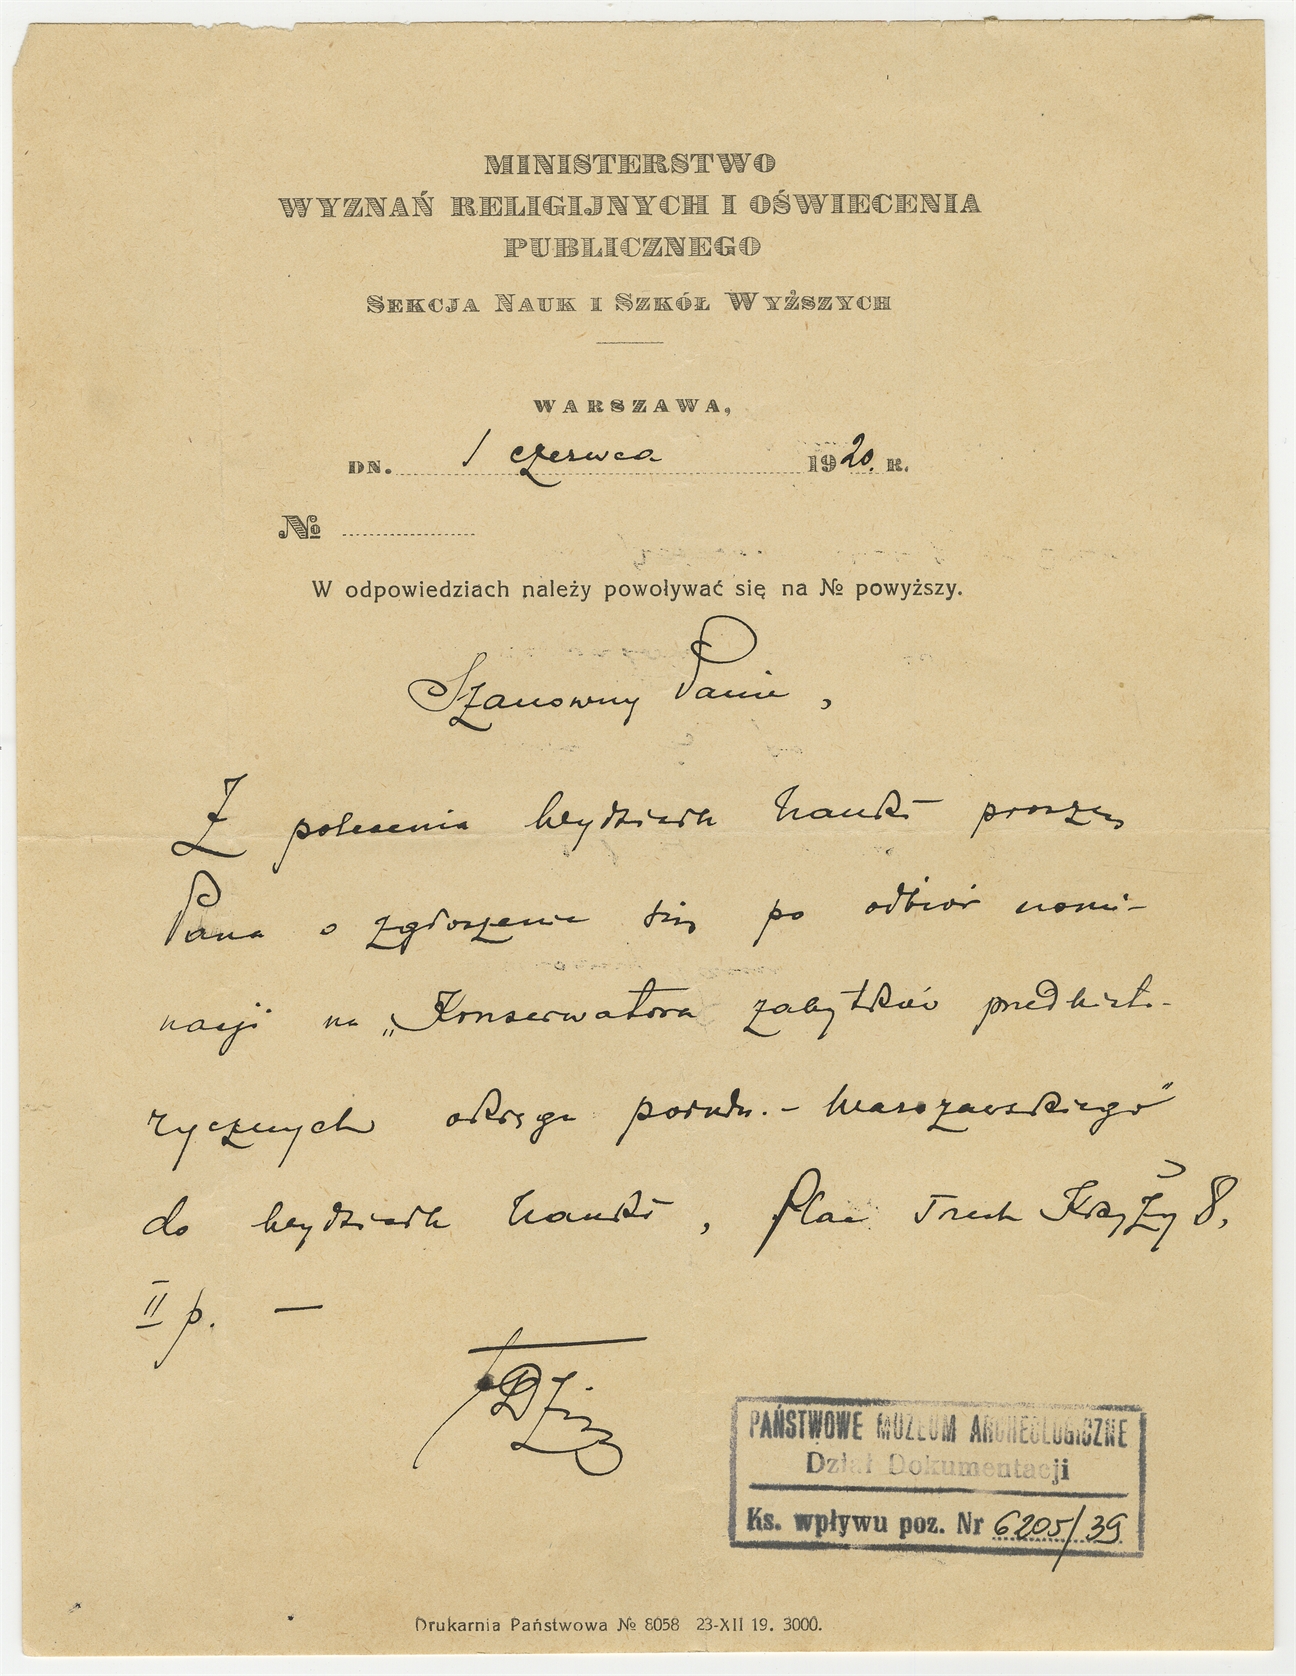 MINISTERSTWO
WYZNAŃ RELIGIJNYCH I OŚWIECENIA
PUBLICZNEGO
SEKCJA NAUK I SZKÓŁ WYŻSZYCH
WARSZAWA,
DN. 1 czerwca 1920. R.
№
W odpowiedziach należy powoływać się na № powyższy.
Szanowny Panie,
Z polecenia Wydziału Nauki proszę
Pana o zgłoszenie się po odbiór nomi-
nacji na „Konserwatora zabytków przedhisto-
rycznych okręgu połudn. - Warszawskiego"
do Wydziału Nauki, Plac Trzech Krzyży 8,
II p. —
PAŃSTWOWE MUZEUM ARCHEOLOGICZNE
Dział Dokumentacji
Ks. wpływu poz. Nr 6205/39
Drukarnia Państwowa № 8058 23-XII 19. 3000.